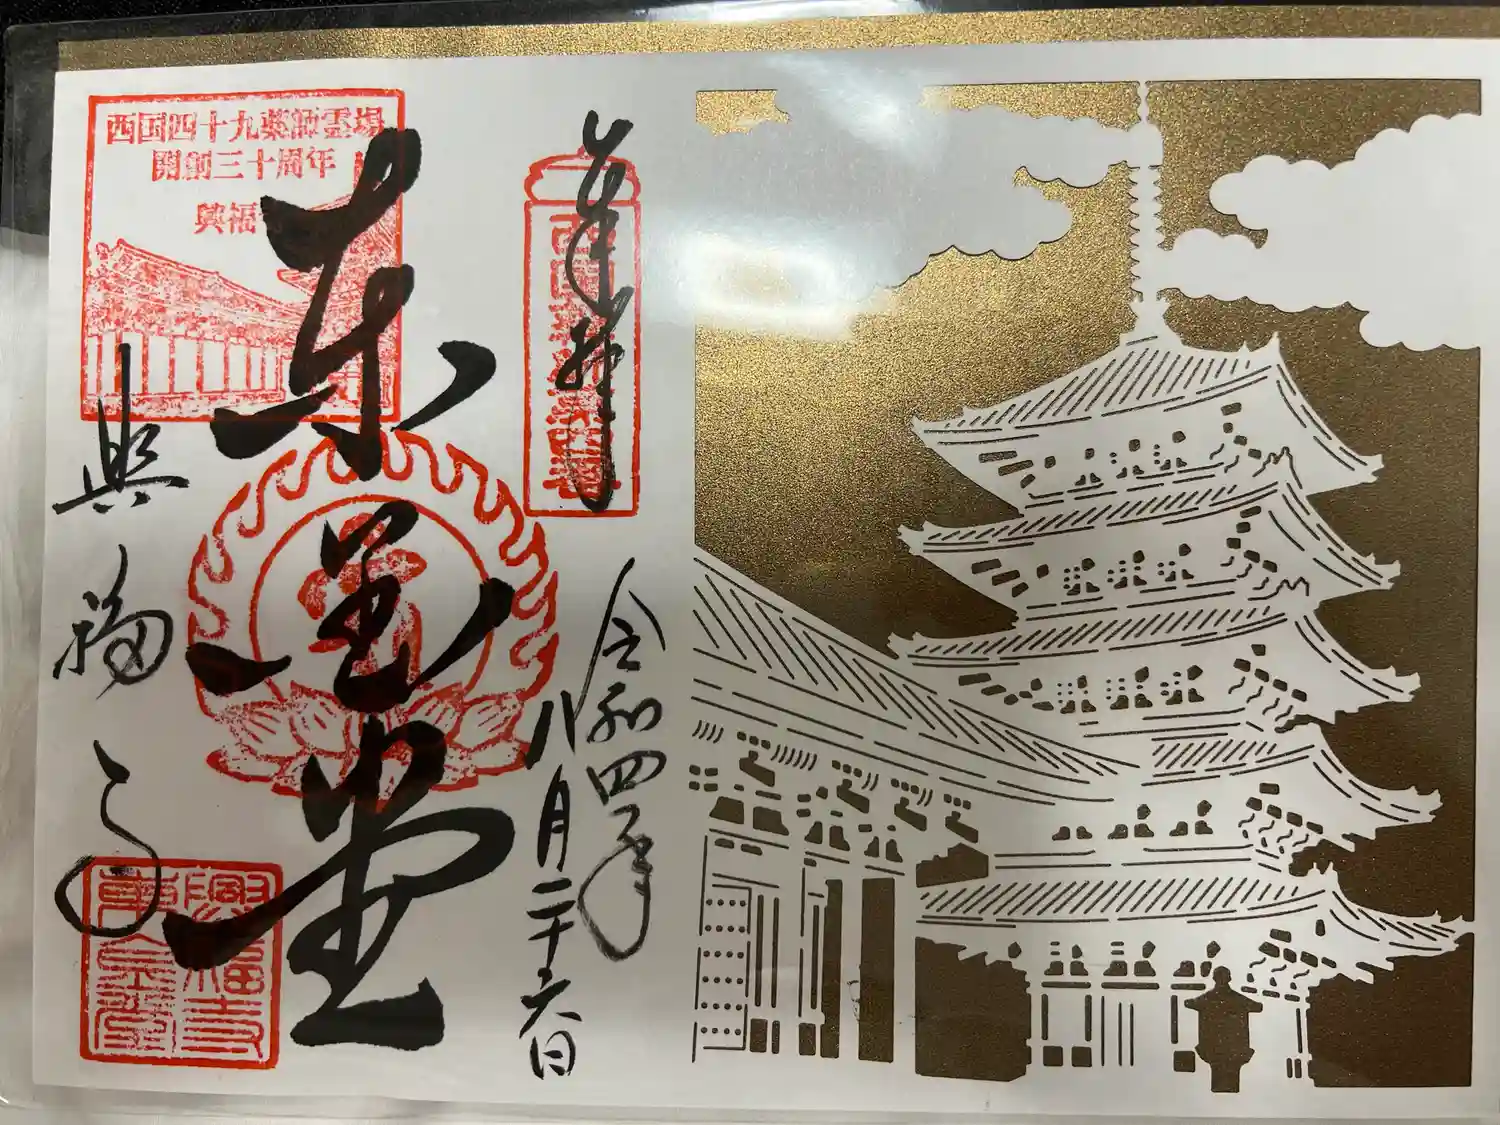 奉拝
令和四年
八月二十六日
東金堂
興福寺
西国四十九薬師霊場
開創三十周年
興福
興福寺
東金堂